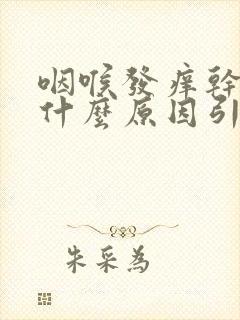 咽喉發癢幹
什麼原因引
朱采為